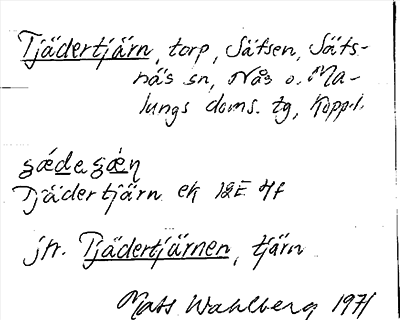 Tjädertjärn, torp, Sätsen, Säts-
näs sn, Nås o. Ma-
lungs doms. tg, Kopp.l.
Tjädertjärn ek 12E 4f
jfr. Tjädertjärnen, tjärn
Mats Wahlberg 1971